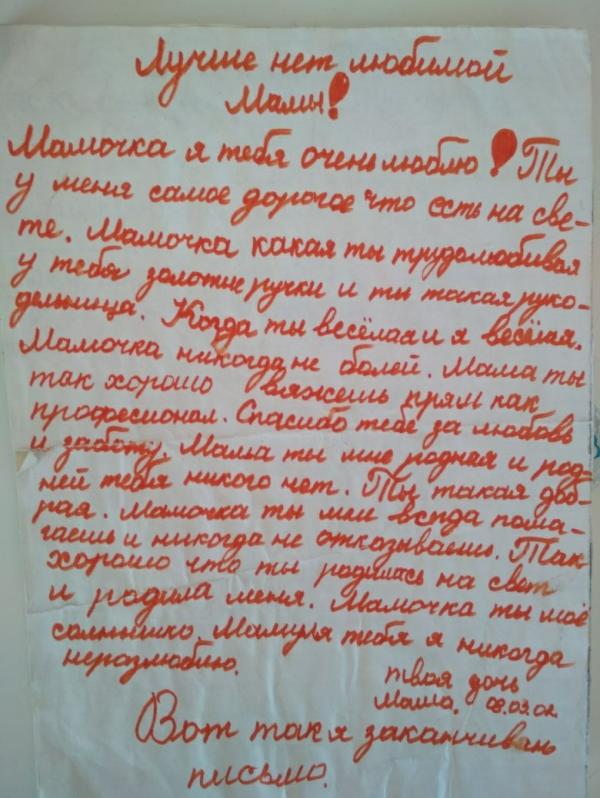 Лучше нет любимой
Мамы!
Мамочка я тебя очень люблю! Ты
у меня самое дорогое что есть на све-
те. Мамочка какая ты трудолюбивая
у тебя золотые ручки и ты такая руко-
дельница. Когда ты весёлая и я весёлая.
Мамочка никогда не болей. Мама ты
так хорошо вяжешь прям как
професионал. Спасибо тебе за любовь
и заботу. Мама ты мне родная и род-
ней тебя никого нет. Ты такая доб-
рая. Мамочка ты мне всегда пома-
гаешь и никогда не отказываешь. Так
хорошо что ты родилась на свет
и родила меня. Мамочка ты моё
солнышко. Мамуля тебя я никогда
неразлюблю.
твоя дочь
08.03.02
Вот так я заканчиваю
письмо.